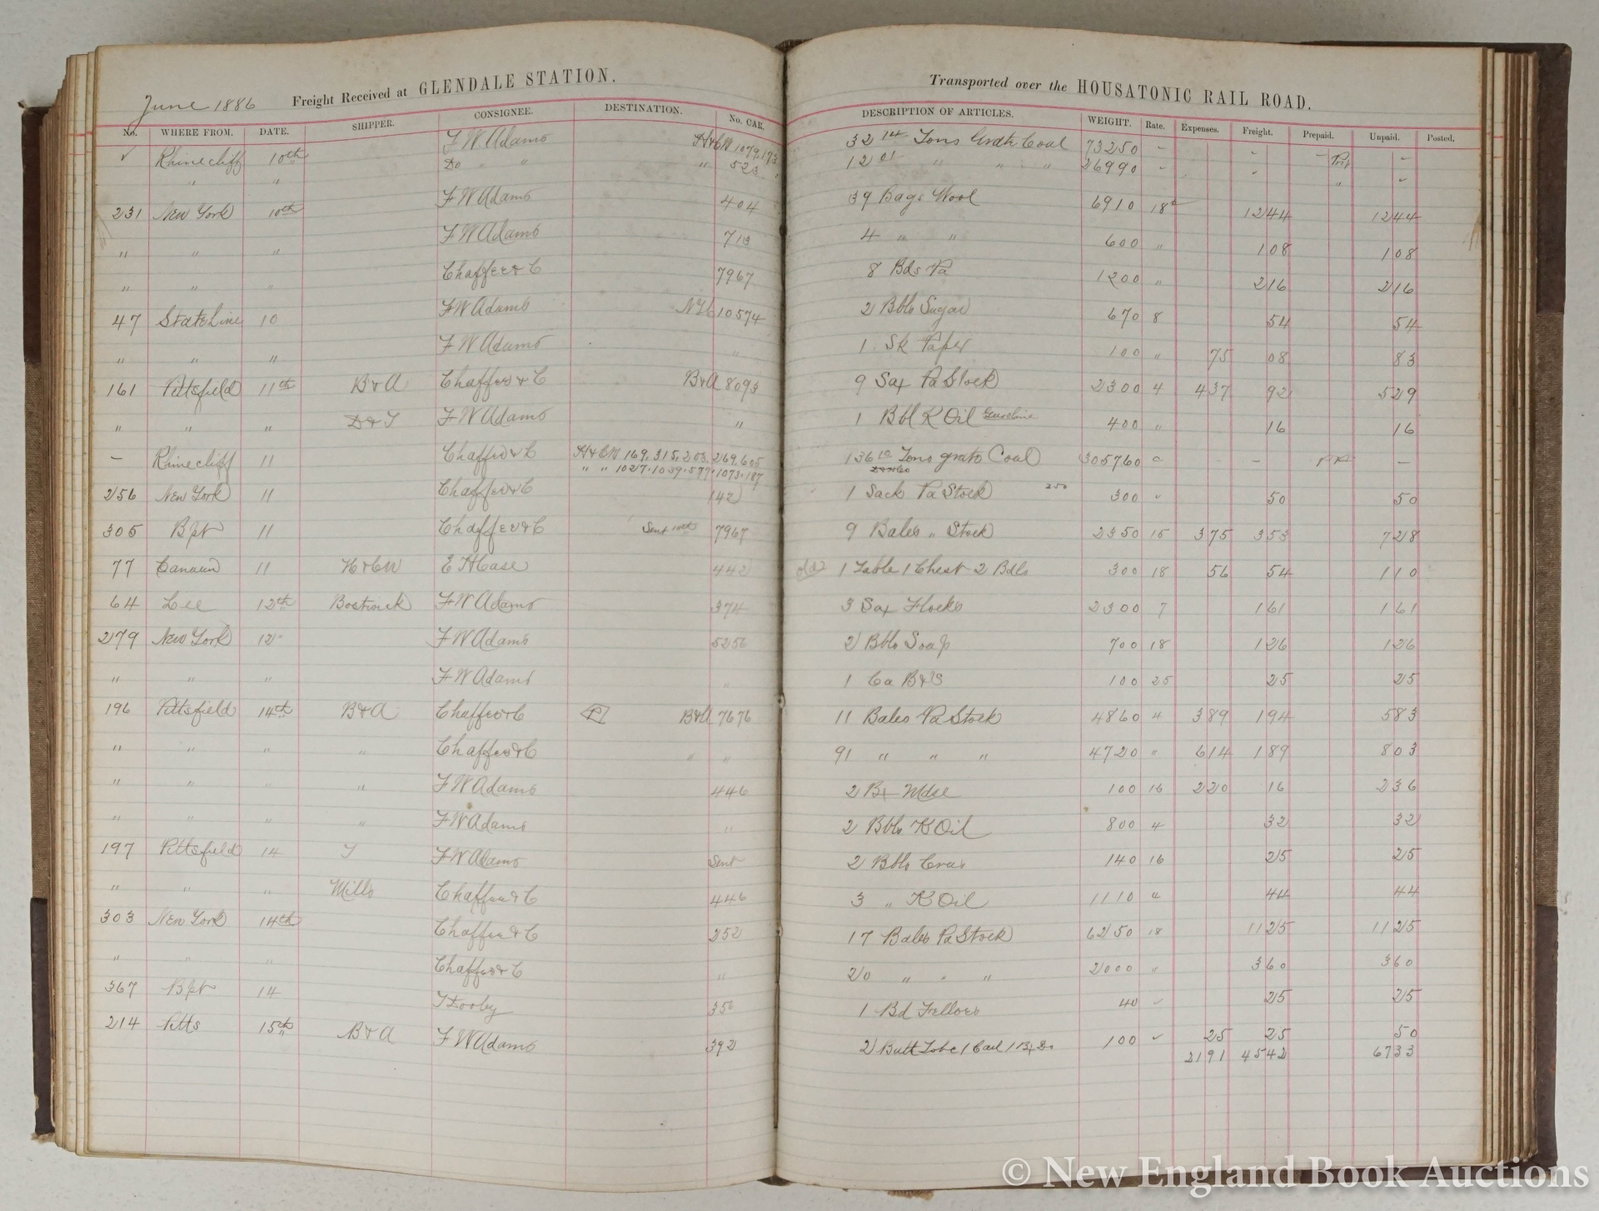 June 1886 Freight Received at GLENDALE STATION. Transported over the HOUSATONIC RAIL ROAD.
No. WHERE FROM. DATE. SHIPPER. CONSIGNEE. DESTINATION. No. CAR. DESCRIPTION OF ARTICLES. WEIGHT. Rate. Expenses. Freight. Prepaid. Unpaid. Posted.
✓ Rhinecliff 10th F W Adams H&CW 1079.173 32 14 Tons Grate Coal 73250 - - - -
" " Do " " " 523 12 01 " " " 26990 - - " -
231 New York 10th F W Adams 404 39 Bags Wool 6910 18 1244 1244
" " " F W Adams 713 4 " " 600 " 108 108
" " " Chaffee & C 7967 8 Bds Pa 1200 " 216 216
47 State Line 10 F W Adams 10574 2 Bbls Sugar 670 8 54 54
" " " F W Adams " 1 Sk Paper 100 " 75 08 83
161 Pittsfield 11th B&A Chaffee & C B&A 8093 9 Sax Pa Stock 2300 4 437 92 529
" " " F W Adams " 1 Bbl K Oil Gasoline 400 " 16 16
- Rhinecliff 11 Chaffee & C H&CW 169.315.203.269.605 136 Tons grate Coal 305760 - -
" " 1027.1039.577.1073.187
256 New York 11 Chaffee & C 142 1 Sack Pa Stock 250 300 " 50 50
305 Bpt 11 Chaffee & C Sent 10th 7967 9 Bales " Stock 2350 15 375 353 728
77 Canaan 11 H&CW E H Case 442 1 Table 1 Chest 2 Bdls 300 18 56 54 110
64 Lee 12th Bostwick F W Adams 374 3 Sax Flocks 2300 7 161 161
279 New York 12 F W Adams 5256 2 Bbls Soap 700 18 126 126
" " " F W Adams " 1 Ca B&S 100 25 25 25
196 Pittsfield 14th B&A Chaffee & C P B&A 7676 11 Bales Pa Stock 4860 4 389 194 583
" " " " Chaffee & C " " 91 " " " 4720 " 614 189 803
" " " " F W Adams 446 2 Bx Mdse 100 16 220 16 236
" " " " F W Adams " 2 Bbls K Oil 800 4 32 32
197 Pittsfield 14 F W Adams Sent 2 Bbls 140 16 25 25
" " " Mills Chaffee & C 446 3 " K Oil 1110 " 44 44
303 New York 14th Chaffee & C 252 17 Bales Pa Stock 6250 18 1125 1125
" " " Chaffee & C " 20 " " " 2000 " 360 360
367 Bpt 14 350 1 Bd Felloes 40 ✓ 25 25
214 Pitts 15th B&A F W Adams 392 2 Butt 100 ✓ 25 25 50
2191 4542 6733
© New England Book Auctions